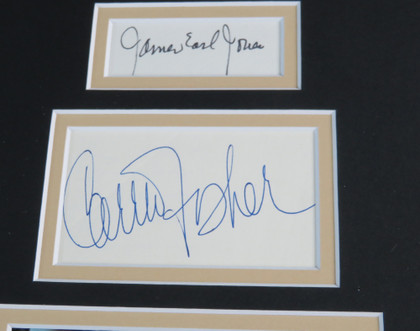 James Earl Jones
Carrie Fisher